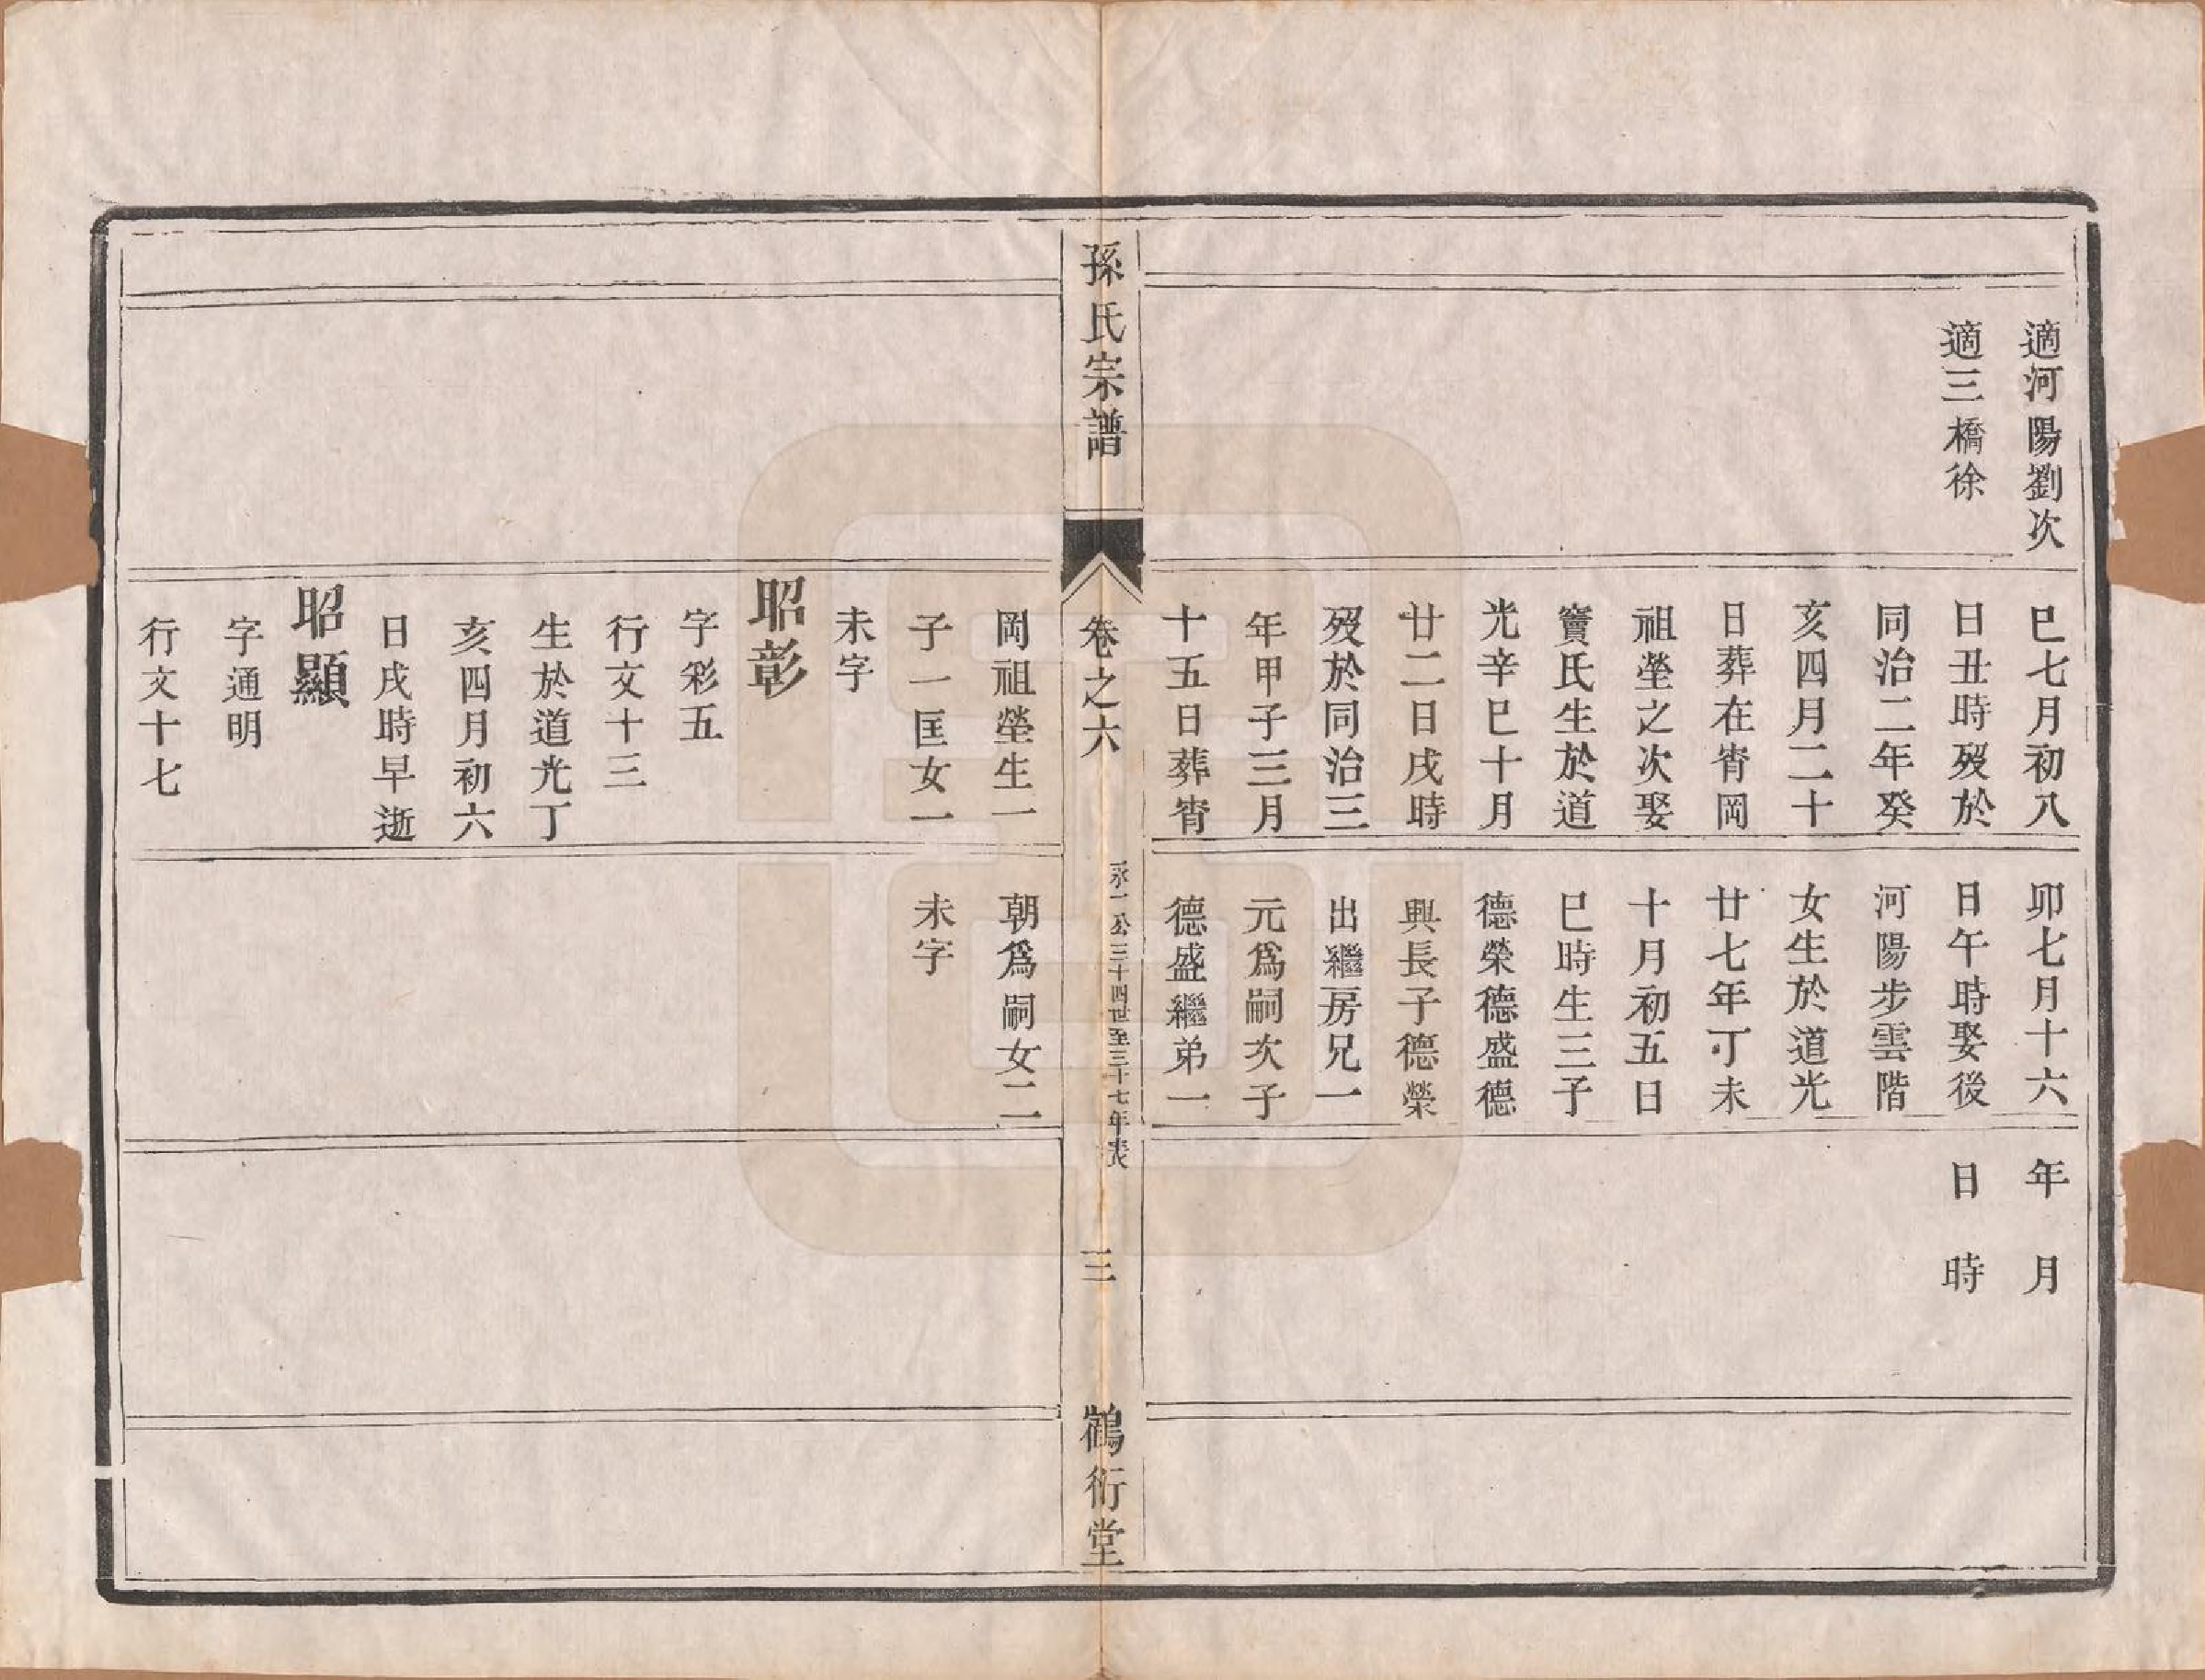 適河陽劉次
適三橋徐
巳七月初八
日丑時歿於
同治二年癸
亥四月二十
日葬在胥岡
祖塋之次娶
竇氏生於道
光辛巳十月
廿二日戌時
歿於同治三
年甲子三月
十五日葬胥
卯七月十六
日午時娶後
河陽步雲階
女生於道光
廿七年丁未
十月初五日
巳時生三子
德榮德盛德
興長子德榮
出繼房兄一
元爲嗣次子
德盛繼弟一
年月
日時
孫氏宗譜
卷之六
永一公三十四世至三十七年表
三
鶴衍堂
岡祖塋生一
子一匡女一
未字
昭彰
字彩五
行文十三
生於道光丁
亥四月初六
日戌時早逝
昭顯
字通明
行文十七
朝爲嗣女二
未字